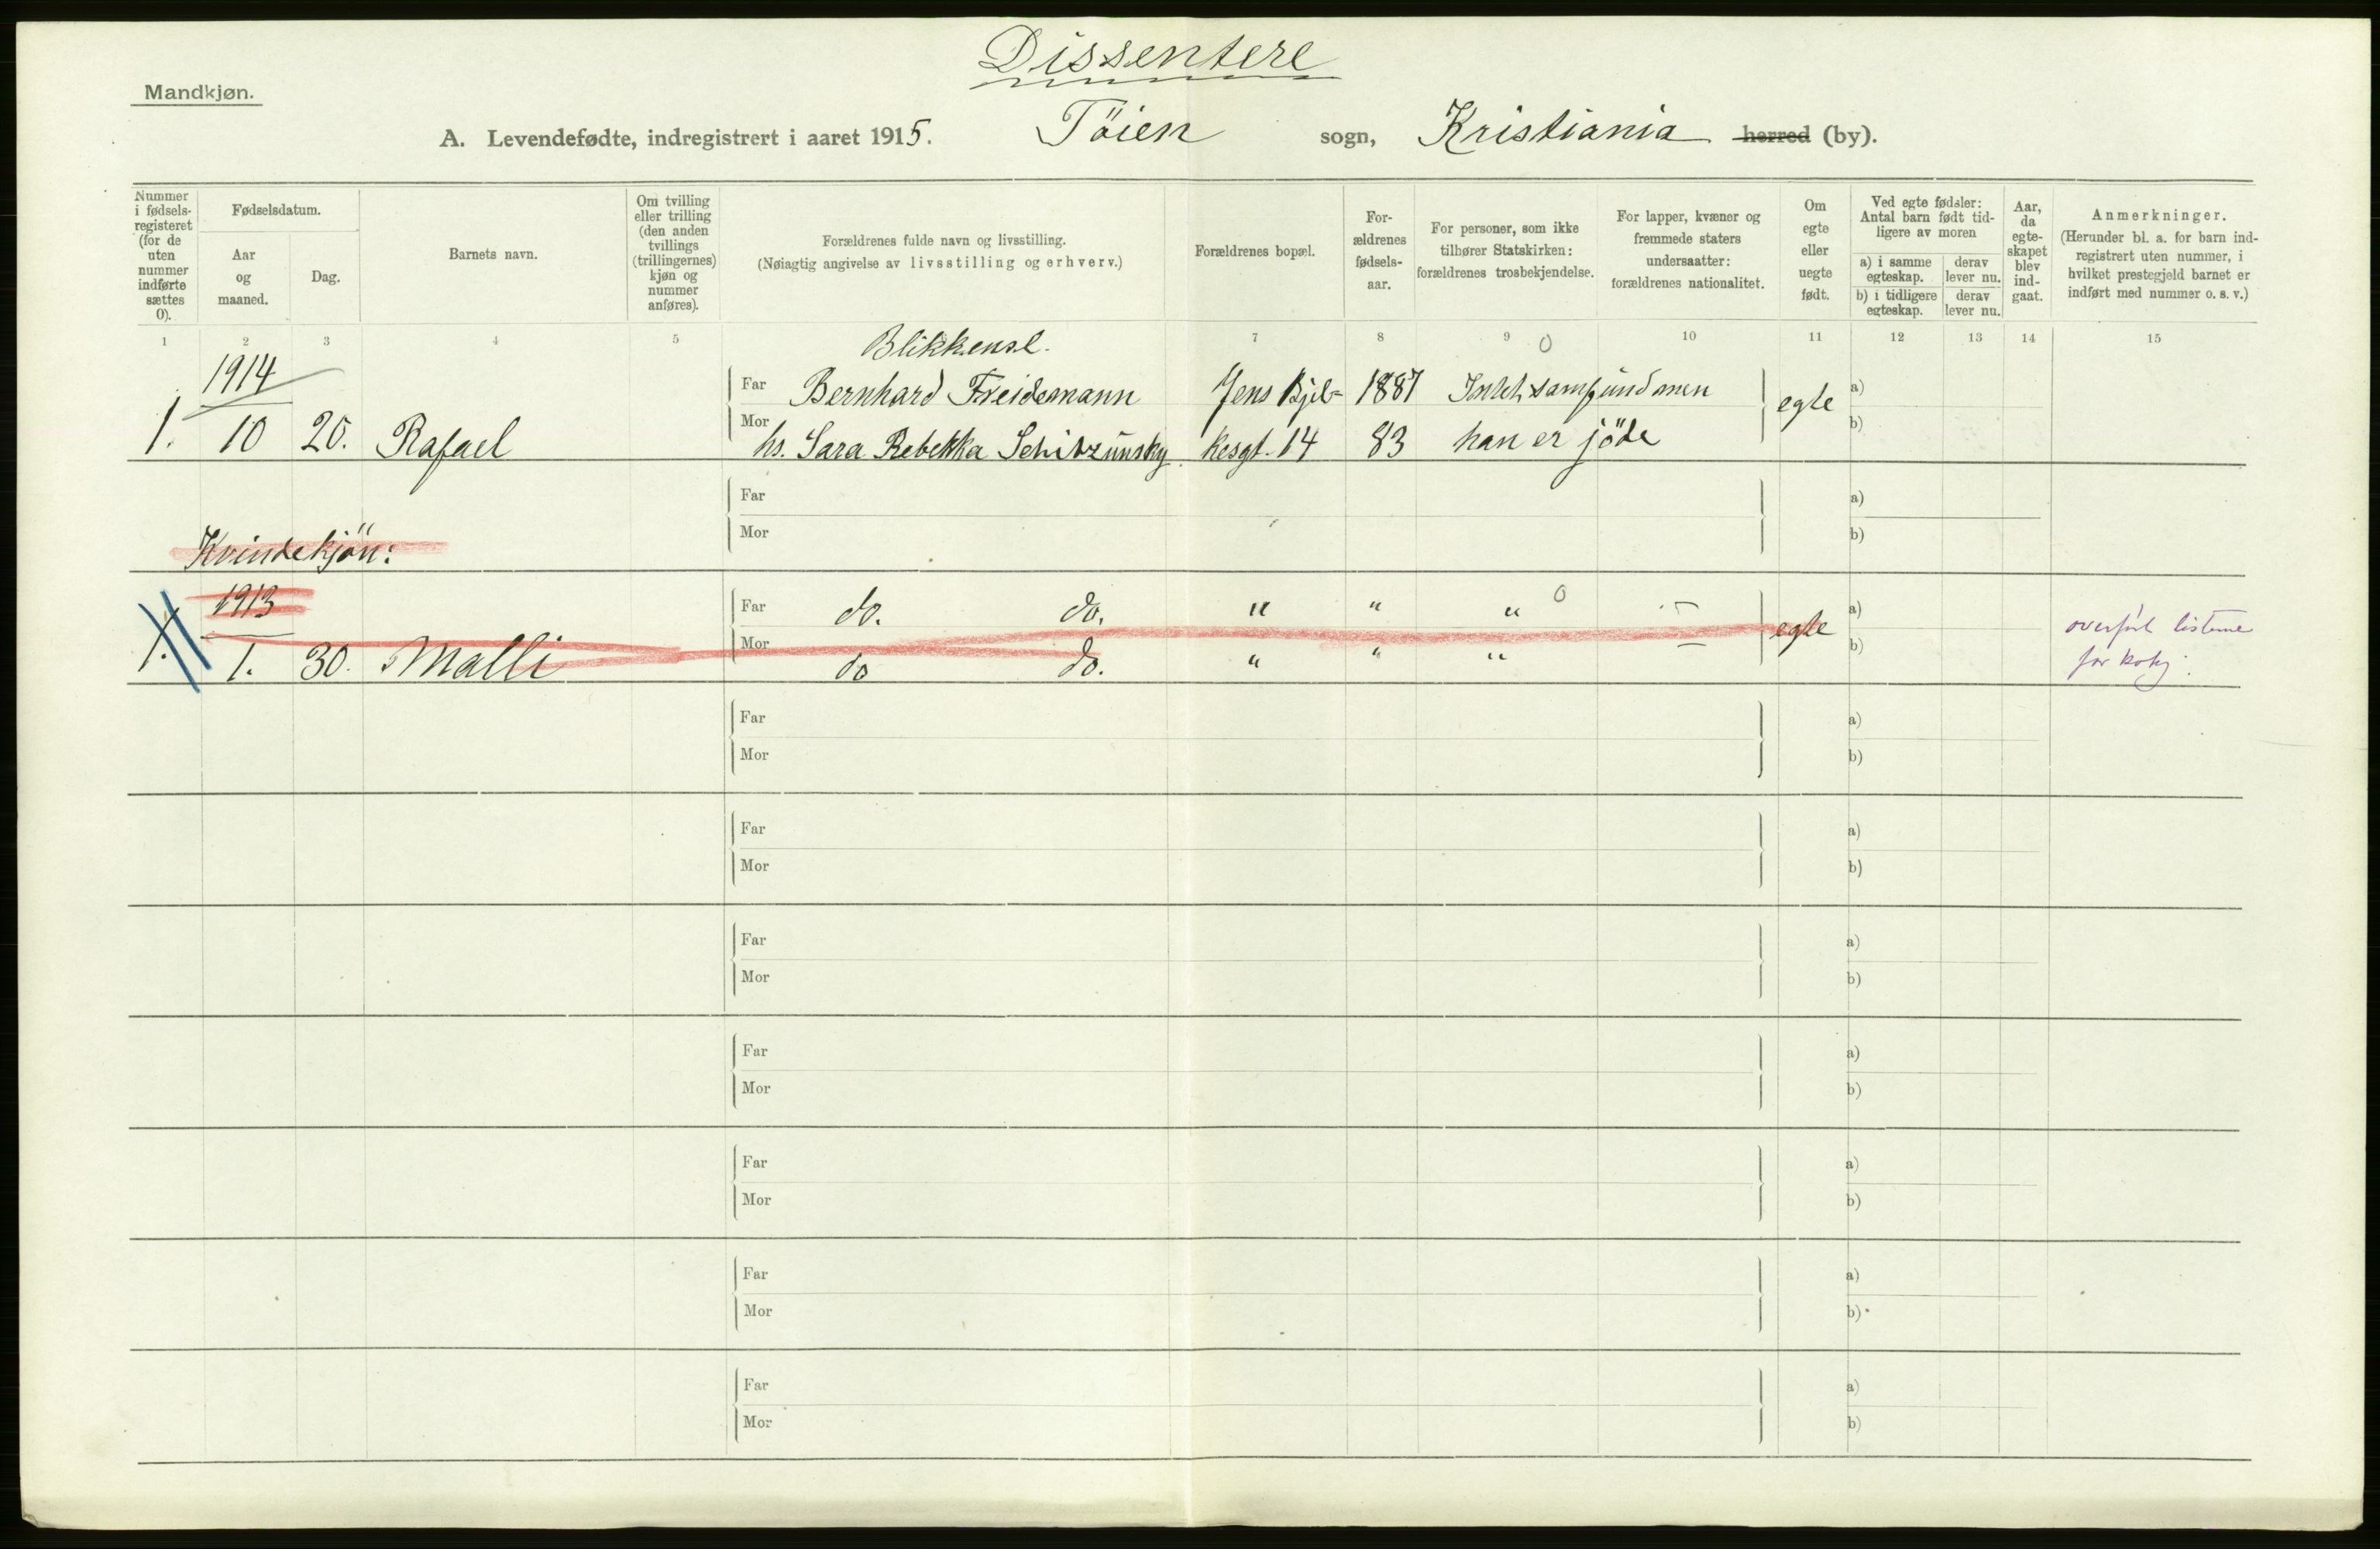 Dissentere
Mandkjøn.
A. Levendefødte, indregistrert i aaret 1915. Töien sogn, Kristiania herred (by).
Nummer i fødsels-registeret (for de uten nummer indførte sættes 0).
Fødselsdatum.
Aar og maaned.
Dag.
Barnets navn.
Om tvilling eller trilling (den anden tvillings (trillingernes) kjøn og nummer anføres).
Forældrenes fulde navn og livsstilling.
(Nøiagtig angivelse av livsstilling og erhverv.)
Forældrenes bopæl.
For-ældrenes fødsels-aar.
For personer, som ikke tilhører Statskirken: forældrenes trosbekjendelse.
For lapper, kvæner og fremmede staters undersaatter: forældrenes nationalitet.
Om egte eller uegte født.
Ved egte fødsler: Antal barn født tid-ligere av moren
a) i samme egteskap.
derav lever nu.
b) i tidligere egteskap.
derav lever nu.
Aar, da egte-skapet blev ind-gaat.
Anmerkninger.
(Herunder bl. a. for barn ind-registrert uten nummer, i hvilket prestegjeld barnet er indført med nummer o. s. v.)
1 2 3 4 5 7 8 9 10 11 12 13 14 15
Blikkensl. 0
1914 Far Bernhard Freidemann Jens Bjel- 1887 samfund men a)
1. 10 20. Rafael Mor hs. Sara Rebekka kesgt. 14 83 han er jöde egte b)
Far a)
Mor b)
Kvindekjön:
1913 Far do. do. " " " 0 — a) overført listerne
1. 1. 30. Malli Mor do do. " " " — egte b) for
Far a)
Mor b)
Far a)
Mor b)
Far a)
Mor b)
Far a)
Mor b)
Far a)
Mor b)
Far a)
Mor b)
Far a)
Mor b)